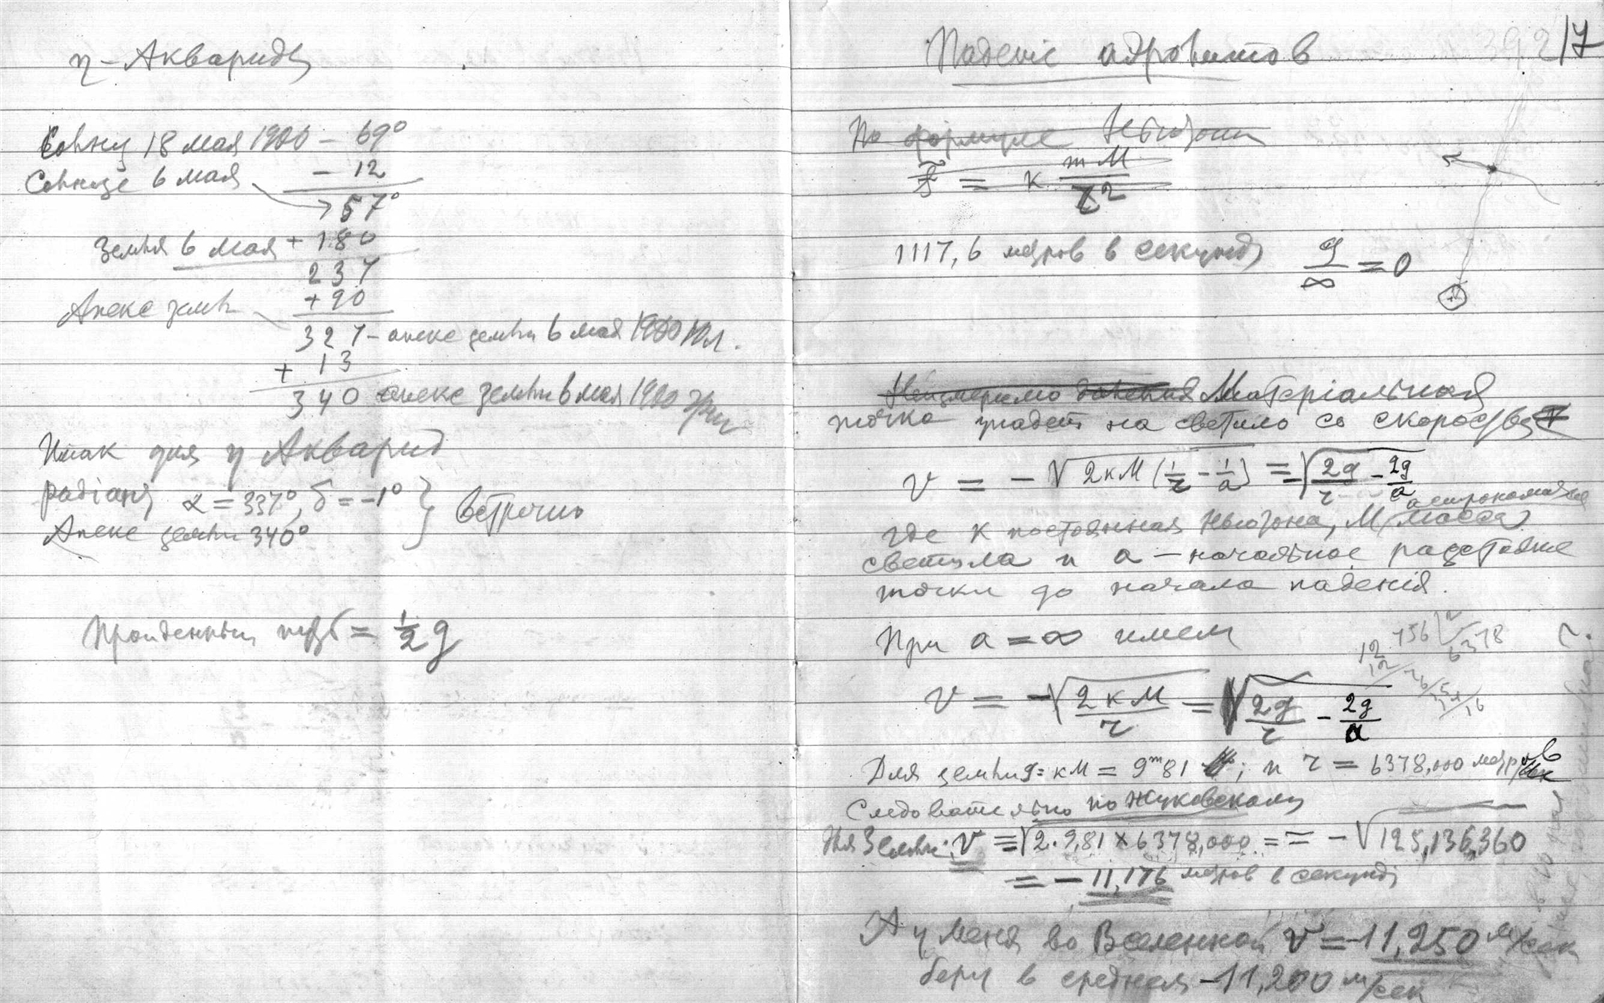 η – Аквариды
Солнц 18 мая 1900 – 69°
Солнце 6 мая – 12
57°
Земля 6 мая + 180
237
Апекс земли + 90
327 – апекс земли 6 мая 1900 Юл.
+ 13
340 апекс земли 6 мая 1900 Григ
Итак для η Акварид
радіант α = 337°, δ = –1° } Встречн
Апекс земли 340°
Пройденный путь = 1/2 g
392/7
Паденіе аэролитов
По формуле Ньютона
F = к mM/r²
1117,6 метров в секунду g/∞ = 0
Неизмеримо далекая Матеріальная
точка упадет на светило со скоростью
v = – √2кМ(1/r – 1/a) = √2g/r – 2g/a
где К постоянная Ньютона, М астрономическая масса
светила и а – начальное разстояние
точки до начала паденія.
При а = ∞ имеем
12 756 6378
v = – √2кМ/r = √2g/r – 2g/a
Для земли g = кМ = 9ᵐ81; и r = 6378,000 метров
Следовательно по Жуковскому
Для Земли: v = √2·9,81 × 6378,000 = = – √125,136,360
= – 11,176 метров в секунду
А у меня во Вселенной v = –11,250 м/сек
беру в среднем –11,200 м/сек